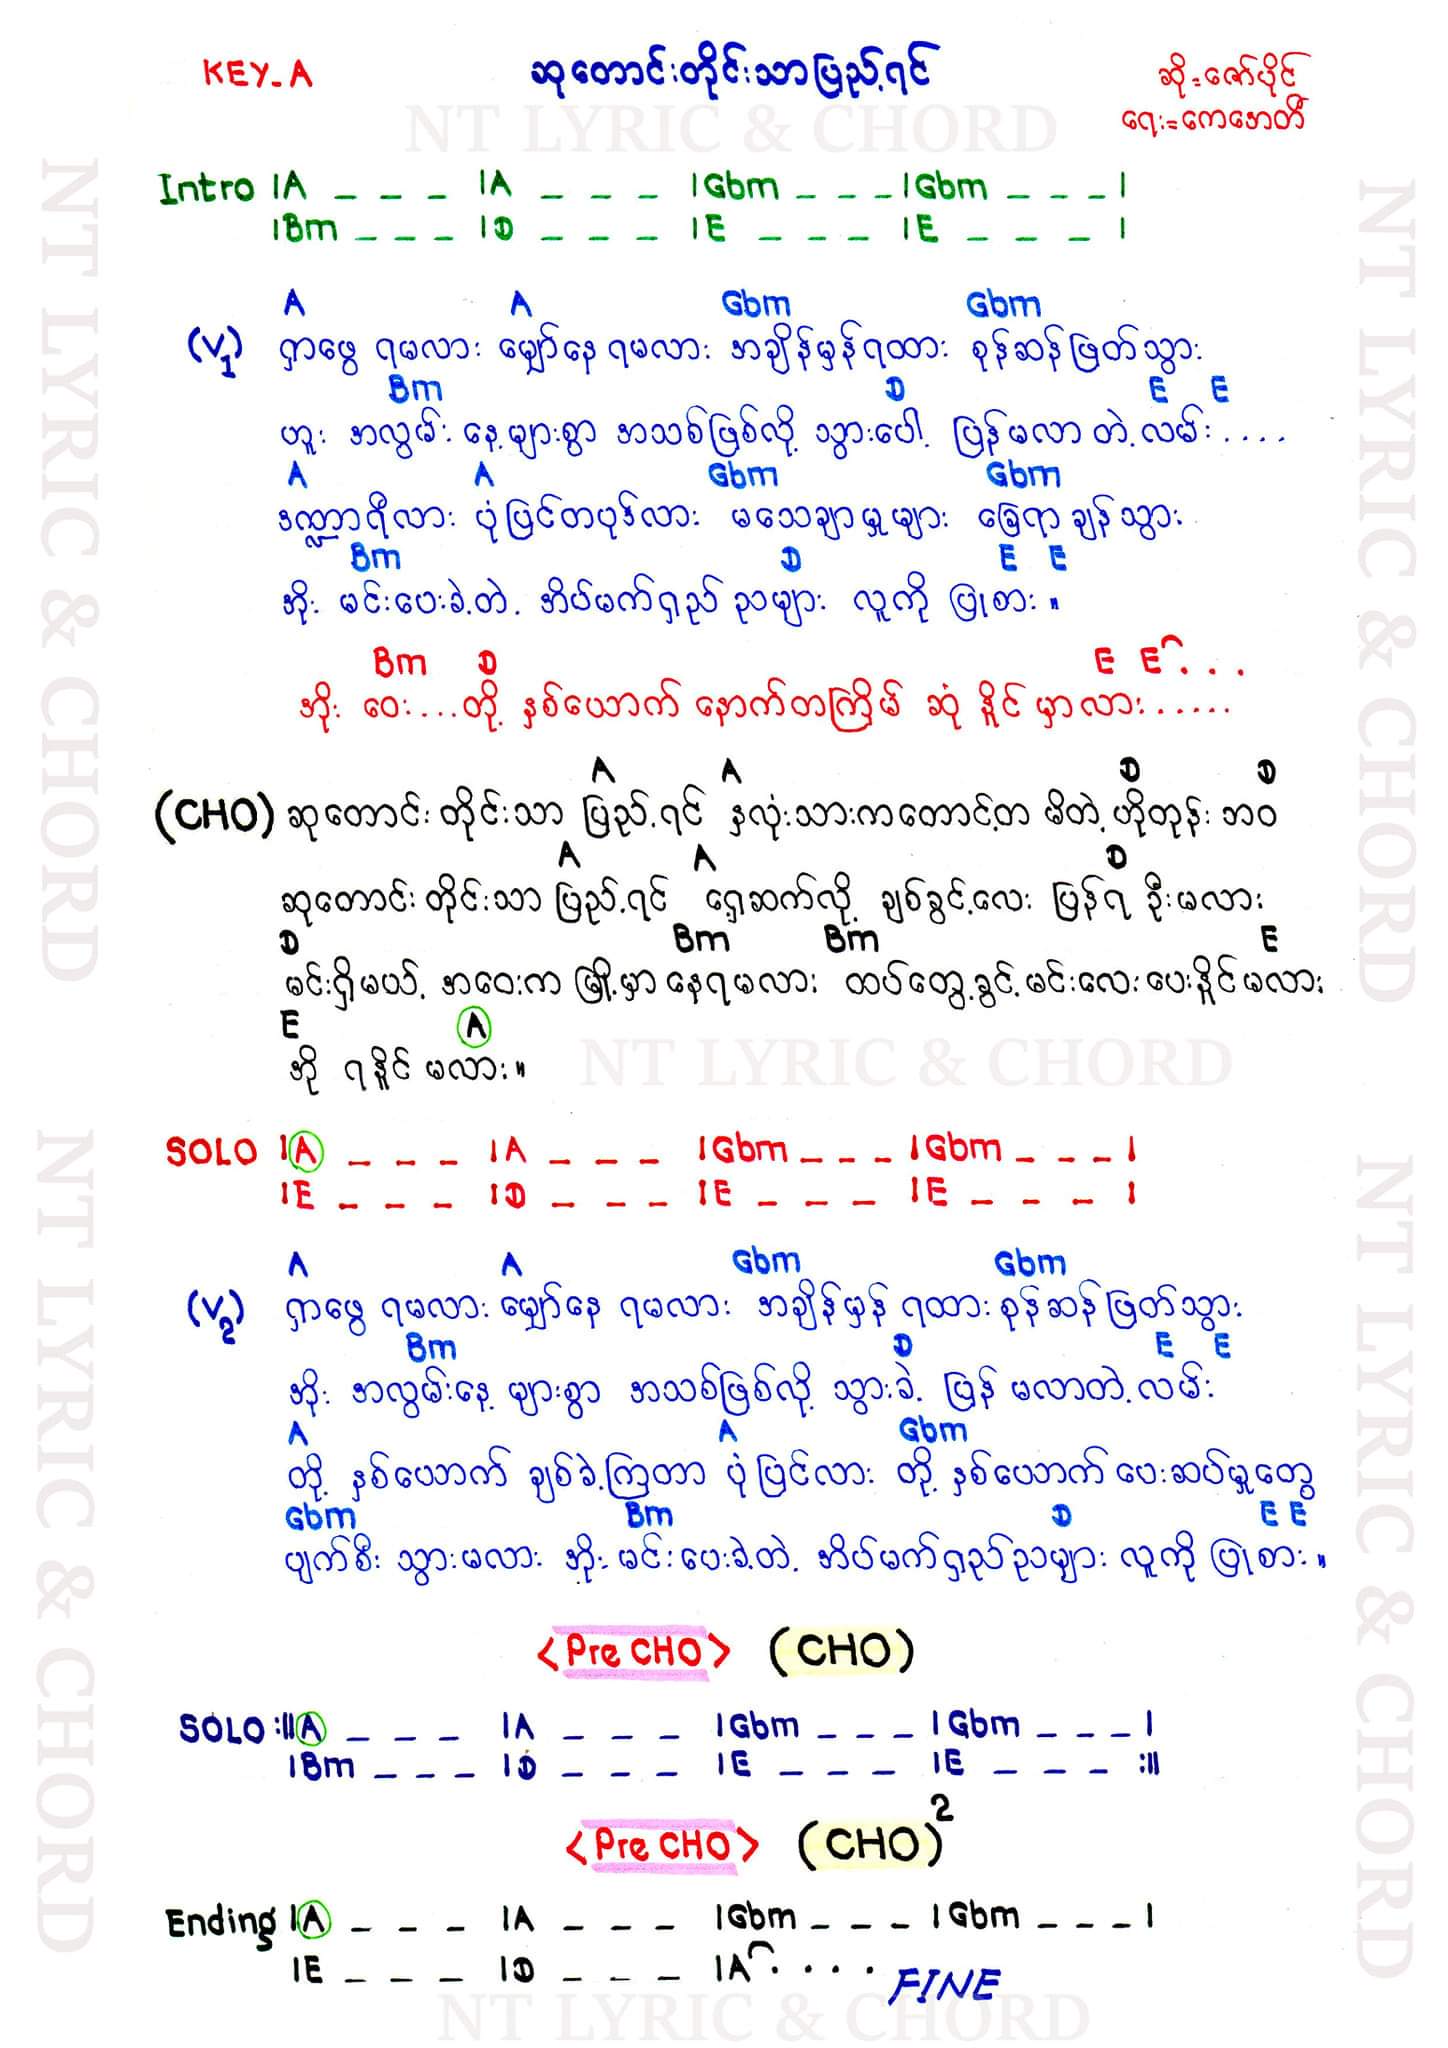 KEY-A
ဆုတောင်းတိုင်းသာပြည့်ရင်
ဆို=ဇော်ပိုင်
ရေး=ကေအေတီ
NT LYRIC & CHORD
Intro |A _ _ _ |A _ _ _ |Gbm _ _ _ |Gbm _ _ _ |
|Bm _ _ _ |D _ _ _ |E _ _ _ |E _ _ _ |
A A Gbm Gbm
(V1) ရှာဖွေ ရမလား မျှော်နေ ရမလား အချိန်မှန်ရထား စုန်ဆန်ဖြတ်သွား
Bm D E E
ဟူး အလွမ်းနေ့များစွာ အသစ်ဖြစ်လို့ သွားပေါ့ ပြန်မလာတဲ့လမ်း....
A A Gbm Gbm
ဒဏ္ဍာရီလား ပုံပြင်တပုဒ်လား မသေချာမှုများ ခြေရာချန်သွား
Bm D E E
အိုး မင်းပေးခဲ့တဲ့ အိပ်မက်ရှည်ညများ လူကို ပြုစား။
Bm D E E...
အိုး ဝေး...တို့ နှစ်ယောက် နောက်တကြိမ် ဆုံနိူင်မှာလား.....
A A D D
(CHO) ဆုတောင်းတိုင်းသာ ပြည့်ရင် နှလုံးသားကတောင့်တ မိတဲ့ ဟိုတုန်းဘဝ
A A D
ဆုတောင်းတိုင်းသာ ပြည့်ရင် ရှေ့ဆက်လို့ ချစ်ခွင့်လေး ပြန်ရဦးမလား
D Bm Bm E
မင်းရှိမယ့် အဝေးကမြို့မှာ နေရမလား ထပ်တွေ့ခွင့် မင်းလေးပေးနိူင်မလား
E A
အို ရနိူင်မလား။
NT LYRIC & CHORD
SOLO |A _ _ _ |A _ _ _ |Gbm _ _ _ |Gbm _ _ _ |
|E _ _ _ |D _ _ _ |E _ _ _ |E _ _ _ |
A A Gbm Gbm
(V2) ရှာဖွေ ရမလား မျှော်နေ ရမလား အချိန်မှန် ရထား စုန်ဆန်ဖြတ်သွား
Bm D E E
အိုး အလွမ်းနေ့ များစွာ အသစ်ဖြစ်လို့ သွားခဲ့ ပြန်မလာတဲ့လမ်း
A A Gbm
တို့ နှစ်ယောက် ချစ်ခဲ့ကြတာ ပုံပြင်လား တို့ နှစ်ယောက် ပေးဆပ်မှုတွေ
Gbm Bm D E E
ပျက်စီး သွားမလား အိုး မင်းပေးခဲ့တဲ့ အိပ်မက်ရှည်ညများ လူကို ပြုစား။
<Pre CHO> (CHO)
SOLO :||A _ _ _ |A _ _ _ |Gbm _ _ _ |Gbm _ _ _ |
|Bm _ _ _ |D _ _ _ |E _ _ _ |E _ _ _ :||
<Pre CHO> (CHO)2
Ending |A _ _ _ |A _ _ _ |Gbm _ _ _ |Gbm _ _ _ |
|E _ _ _ |D _ _ _ |A.... FINE
NT LYRIC & CHORD
NT LYRIC & CHORD
NT LYRIC & CHORD
NT LYRIC & CHORD
NT LYRIC & CHORD